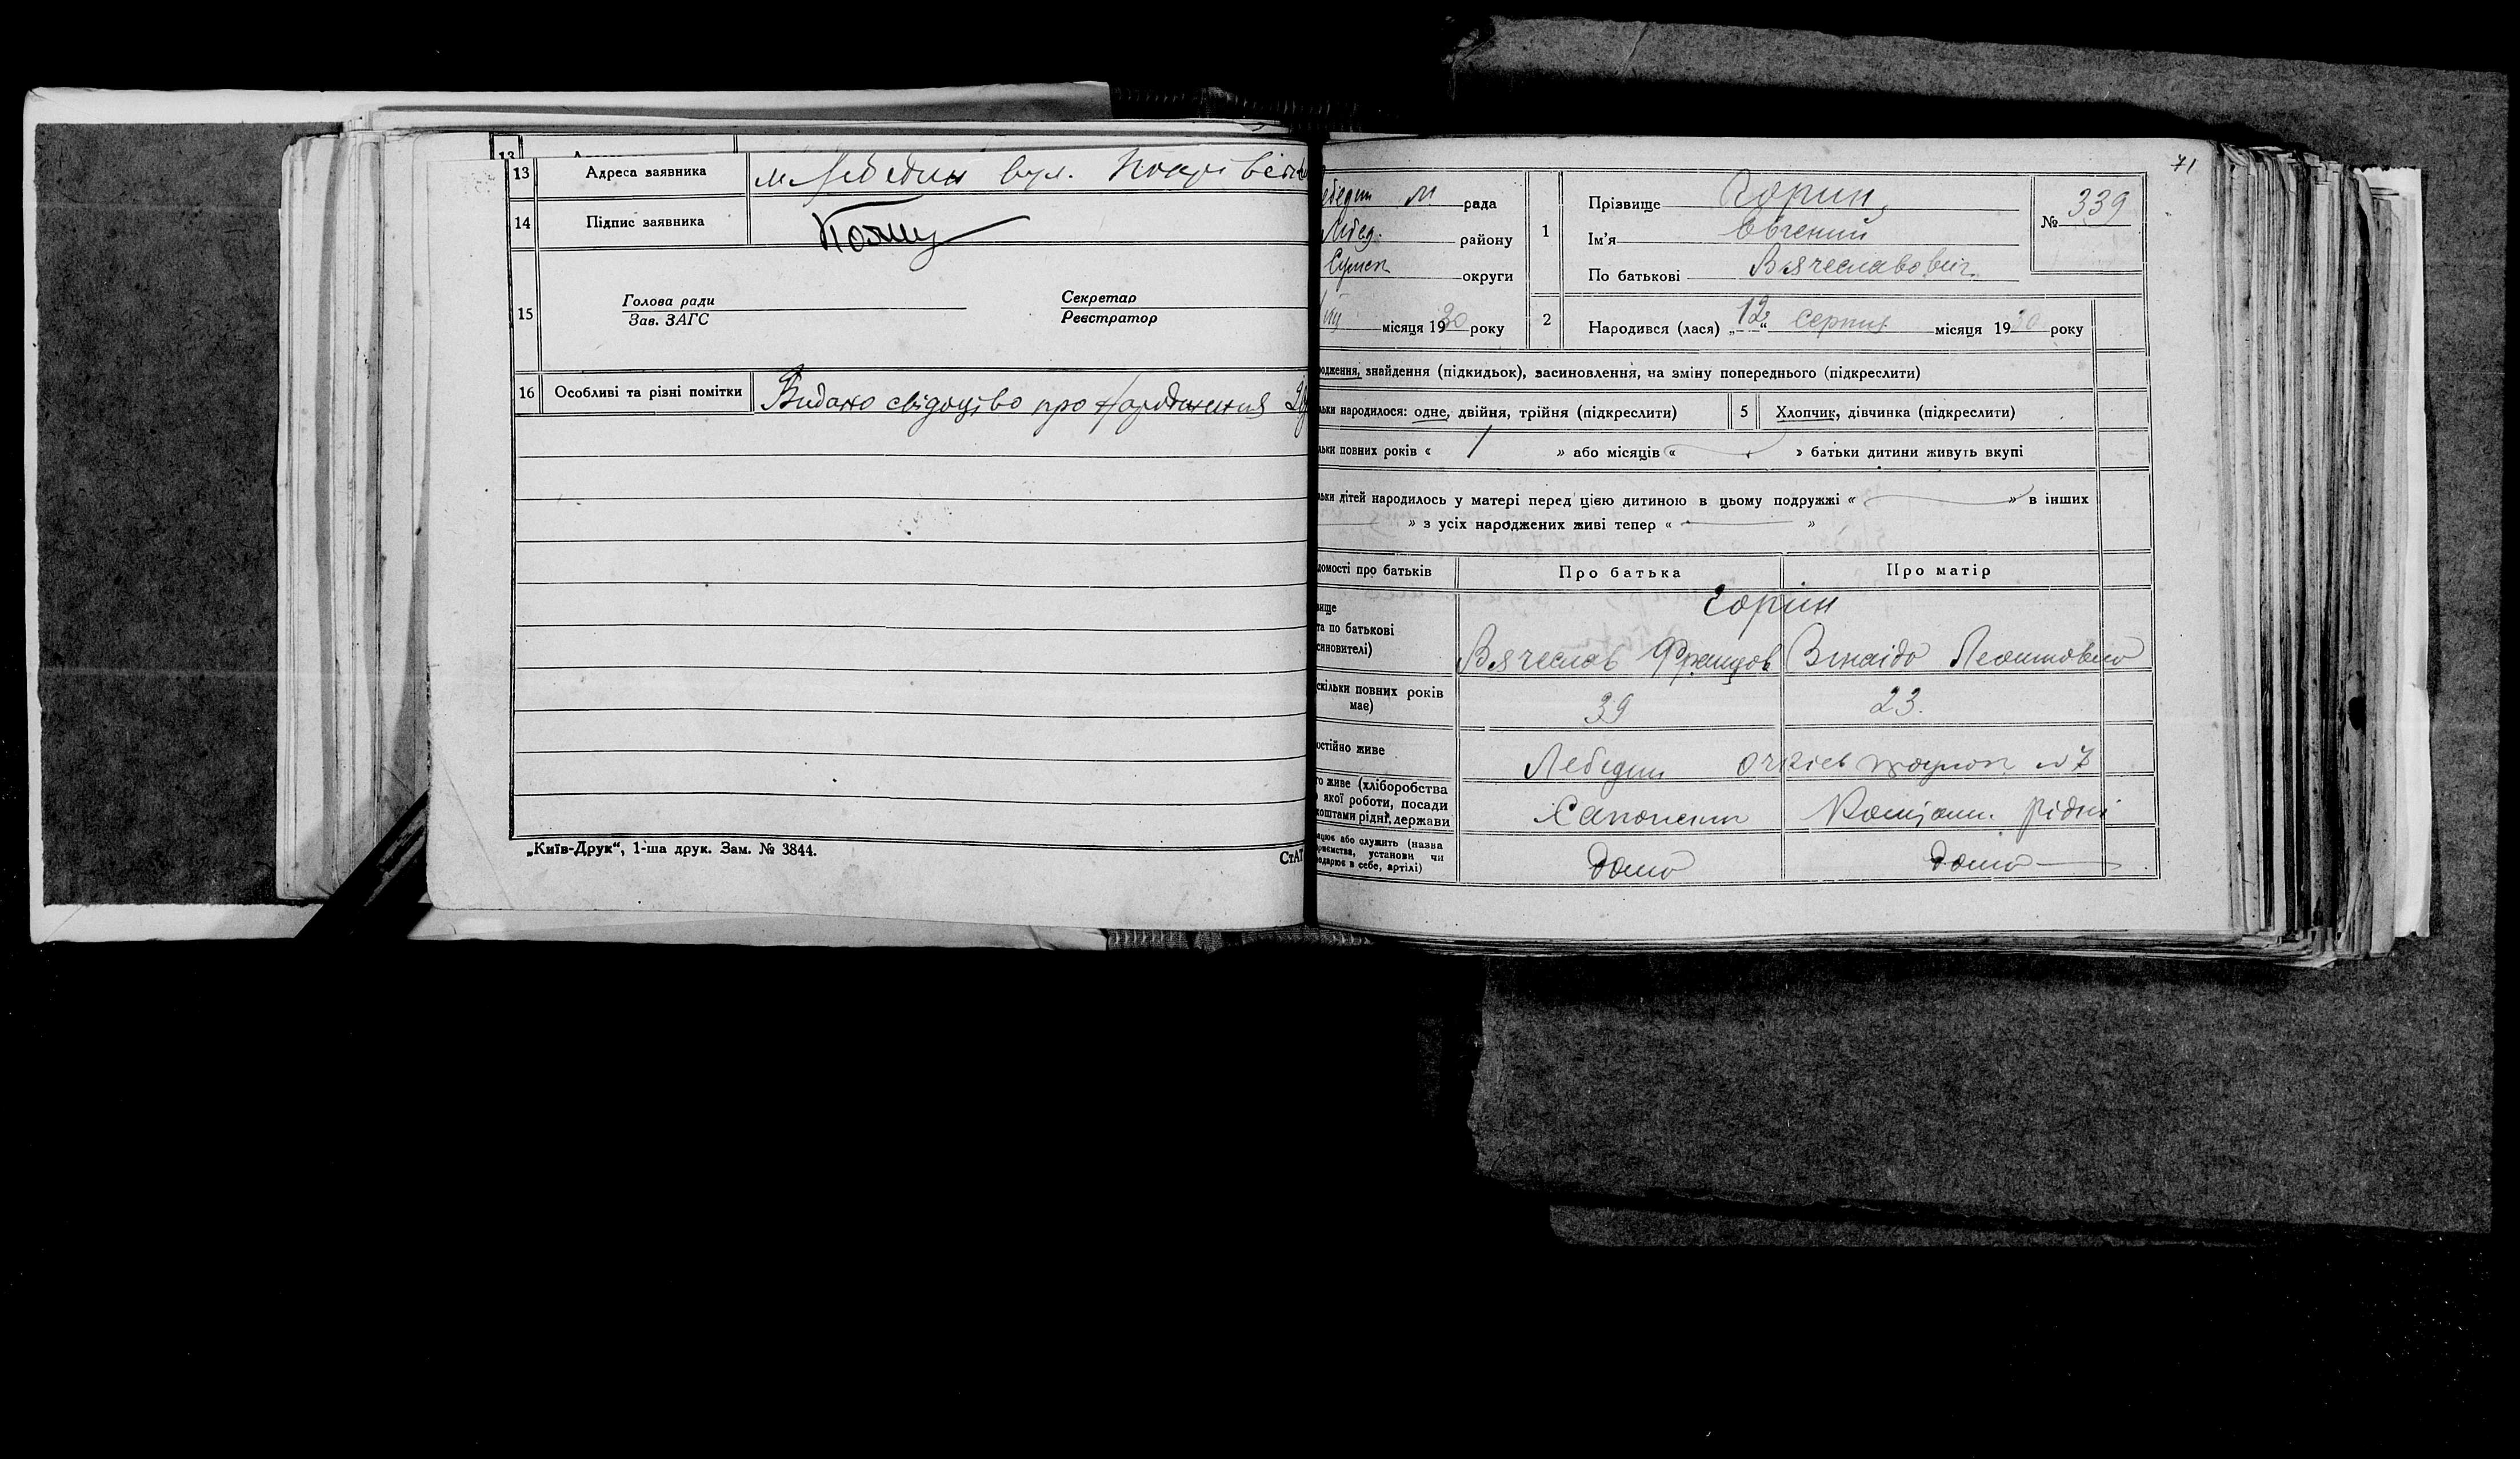 13 Адреса заявника м Лебедин вул.
14 Підпис заявника
15 Голова ради Секретар
Зав. ЗАГС Реєстратор
16 Особливі та різні помітки Видано свідоцтво про народження
„Київ-Друк“, 1-ша друк. Зам. № 3844.
71
ебедин м рада
Лебед. району
Сумск округи
місяця 1930 року
1 Прізвище Горин
Ім'я Євгений
По батькові Вячеславович
№ 339
2 Народився (лася) „12“ серпня місяця 1930 року
одження, знайдення (підкидьок), васиновлення, на зміну попереднього (підкреслити)
льки народилося: одне, двійня, трійня (підкреслити) 5 Хлопчик, дівчинка (підкреслити)
льки повних років « 1 » або місяців « » батьки дитини живуть вкупі
льки дітей народилось у матері перед цією дитиною в цьому подружжі « » в інших
» з усіх народжених живі тепер « »
домості про батьків Про батька Про матір
вище
та по батькові
синовителі)
Горин
Вячеслав Францов Зінаїда Леонтовна
скільки повних років
має)
39 23.
остійно живе Лебедин № 7
го живе (хліборобства
якої роботи, посади
коштами рідні, держави
рідні
ацює або служить (назва
приємства, установи чи
подарює в себе, артілі)
дома дома